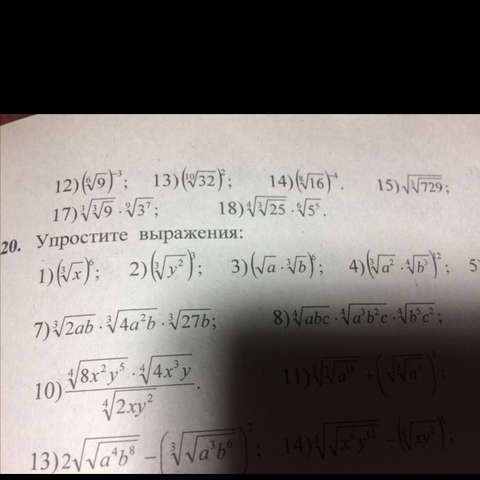 12) (⁶√9)⁻³; 13) (¹⁰√32)²; 14) (⁸√16)⁻⁴. 15) √(³√729);
17) ³√(³√9) · ⁹√(3⁷); 18) ⁴√(³√25) · ⁶√(5⁵).
20. Упростите выражения:
1) (³√x)⁶; 2) (³√(y²))³; 3) (√a · ³√b)⁶; 4) (³√(a²) · ⁴√(b³))¹²; 5
7) ³√(2ab) · ³√(4a²b) · ³√(27b); 8) ⁴√(abc) · ⁴√(a³b²c) · ⁴√(b⁵c²);
10) (⁴√(8x²y⁵) · ⁴√(4x³y)) / ⁴√(2xy²). 11) ³√(³√(a¹⁸)) + (√(³√(a⁴)))³;
13) 2√(√(a⁴b⁸)) − (³√(√(a³b⁶)))²; 14) ³√(√(x⁶y¹²)) −